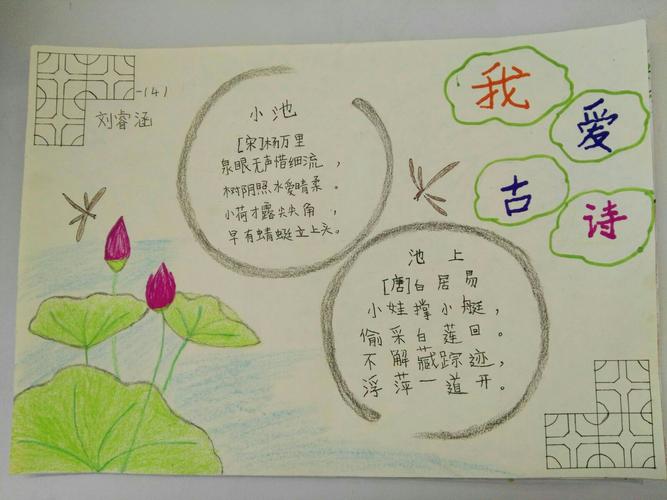 141
刘睿涵
我爱古诗
小池
[宋]杨万里
泉眼无声惜细流，
树阴照水爱晴柔。
小荷才露尖尖角，
早有蜻蜓立上头。
池上
[唐]白居易
小娃撑小艇，
偷采白莲回。
不解藏踪迹，
浮萍一道开。